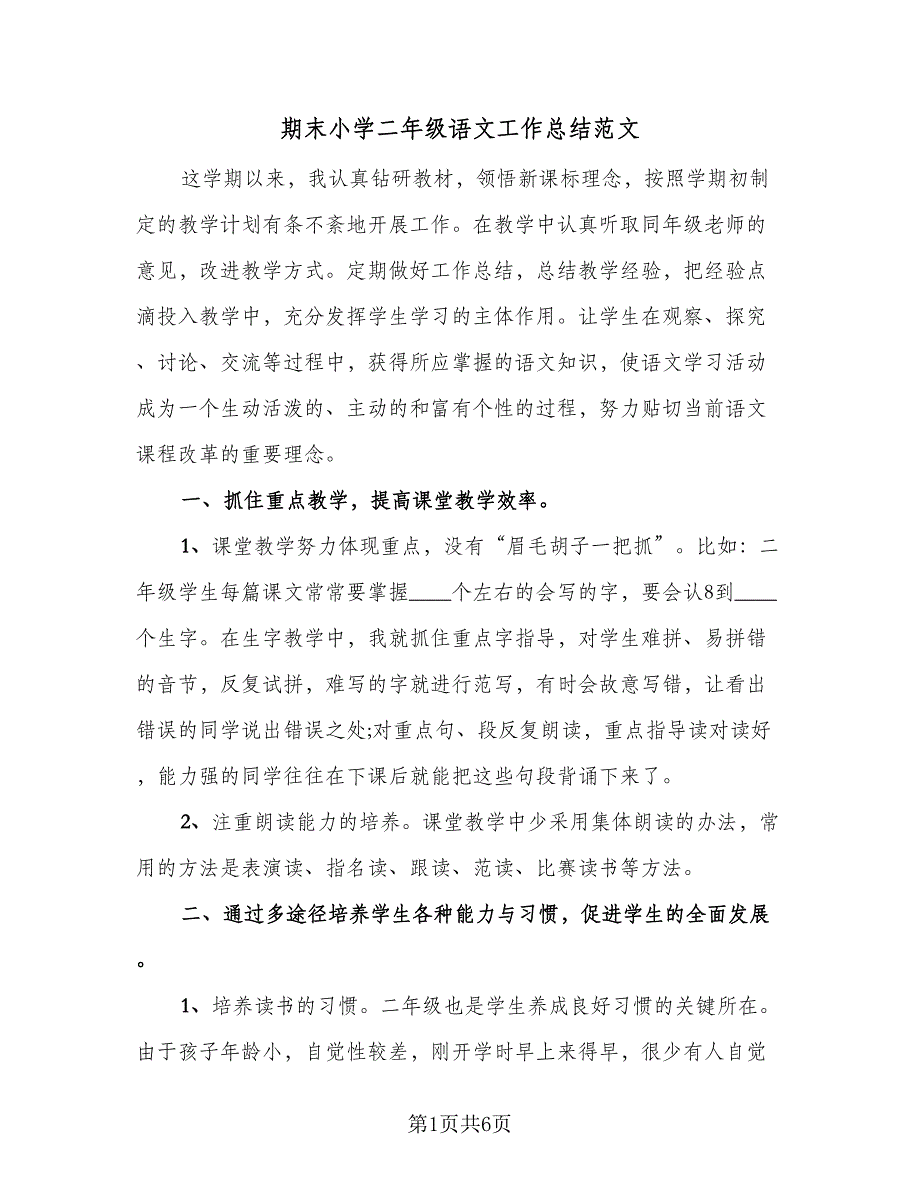 期末小学二年级语文工作总结范文
这学期以来，我认真钻研教材，领悟新课标理念，按照学期初制
定的教学计划有条不紊地开展工作。在教学中认真听取同年级老师的
意见，改进教学方式。定期做好工作总结，总结教学经验，把经验点
滴投入教学中，充分发挥学生学习的主体作用。让学生在观察、探究
、讨论、交流等过程中，获得所应掌握的语文知识，使语文学习活动
成为一个生动活泼的、主动的和富有个性的过程，努力贴切当前语文
课程改革的重要理念。
一、抓住重点教学，提高课堂教学效率。
1、课堂教学努力体现重点，没有“眉毛胡子一把抓”。比如：二
年级学生每篇课文常常要掌握____个左右的会写的字，要会认8到____
个生字。在生字教学中，我就抓住重点字指导，对学生难拼、易拼错
的音节，反复试拼，难写的字就进行范写，有时会故意写错，让看出
错误的同学说出错误之处;对重点句、段反复朗读，重点指导读对读好
，能力强的同学往往在下课后就能把这些句段背诵下来了。
2、注重朗读能力的培养。课堂教学中少采用集体朗读的办法，常
用的方法是表演读、指名读、跟读、范读、比赛读书等方法。
二、通过多途径培养学生各种能力与习惯，促进学生的全面发展
。
1、培养读书的习惯。二年级也是学生养成良好习惯的关键所在。
由于孩子年龄小，自觉性较差，刚开学时早上来得早，很少有人自觉
第1页共6页